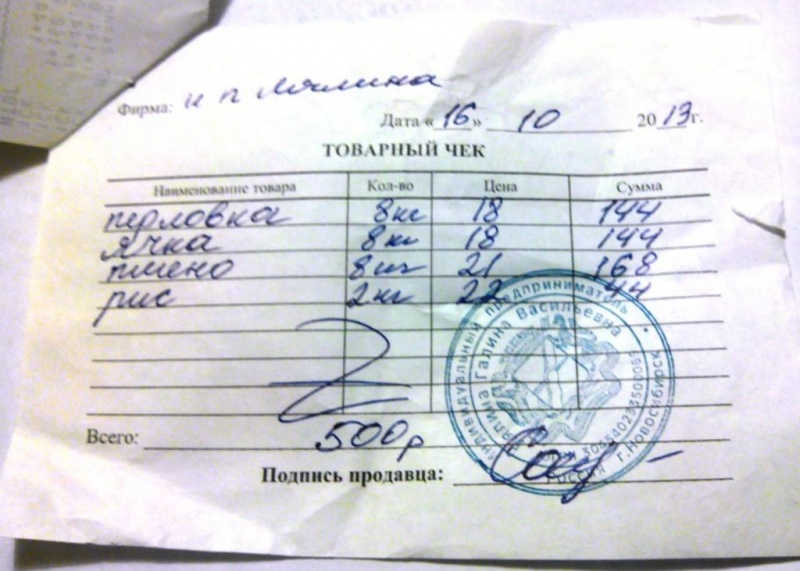 Фирма: ИП Лялина
Дата «16» 10 2013г.
ТОВАРНЫЙ ЧЕК
Наименование товара Кол-во Цена Сумма
перловка 8кг 18 144
ячка 8кг 18 144
пшено 8кг 21 168
рис 2кг 22 44
Всего: 500р
Подпись продавца:
Индивидуальный предприниматель
Галина Васильевна
Россия г.Новосибирск